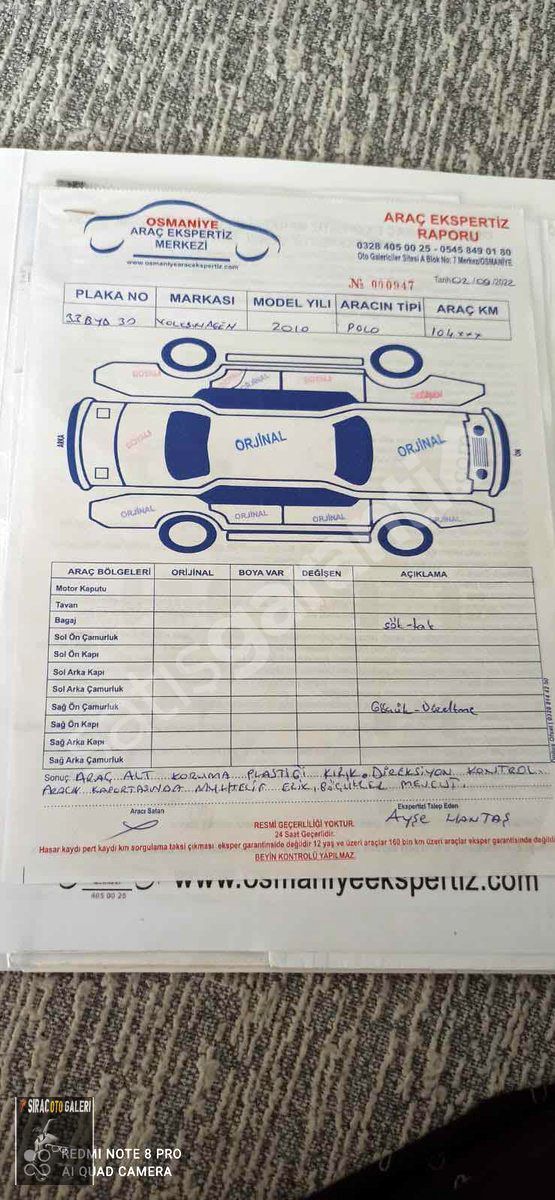 OSMANİYE
ARAÇ EKSPERTİZ
MERKEZİ
www.osmaniyearacekspertiz.com
ARAÇ EKSPERTİZ
RAPORU
0328 405 00 25 - 0545 849 01 80
Oto Galericiler Sitesi A Blok No: 7 Merkez/OSMANİYE
№ 000947
Tarih: 02/09/2022
PLAKA NO MARKASI MODEL YILI ARACIN TİPİ ARAÇ KM
33 BYD 30 VOLKSWAGEN 2010 POLO 104xxx
BOYALI ORJİNAL BOYALI DEĞİŞEN
ARKA BOYALI ORJİNAL ORJİNAL ÖN
ORJİNAL ORJİNAL ORJİNAL ORJİNAL
ARAÇ BÖLGELERİ ORİJİNAL BOYA VAR DEĞİŞEN AÇIKLAMA
Motor Kaputu
Tavan
Bagaj sök-tak
Sol Ön Çamurluk
Sol Ön Kapı
Sol Arka Kapı
Sol Arka Çamurluk
Sağ Ön Çamurluk Göçük-Düzeltme
Sağ Ön Kapı
Sağ Arka Kapı
Sağ Arka Çamurluk
Sonuç: ARAÇ ALT KORUMA PLASTİĞİ KIRIK. DİREKSİYON KONTROL
ARACIN KAPORTASINDA MUHTELİF EZİK, MEVCUT.
Aracı Satan Ekspertizi Talep Eden
Ayşe MANTAŞ
RESMİ GEÇERLİLİĞİ YOKTUR.
24 Saat Geçerlidir.
Hasar kaydı pert kaydı km sorgulama taksi çıkması eksper garantisinde değildir 12 yaş ve üzeri araçlar 160 bin km üzeri araçlar eksper garantisinde değildir
BEYİN KONTROLÜ YAPILMAZ
405 00 25
www.osmaniyeekspertiz.com
SİRAÇ OTO GALERİ
REDMI NOTE 8 PRO
AI QUAD CAMERA